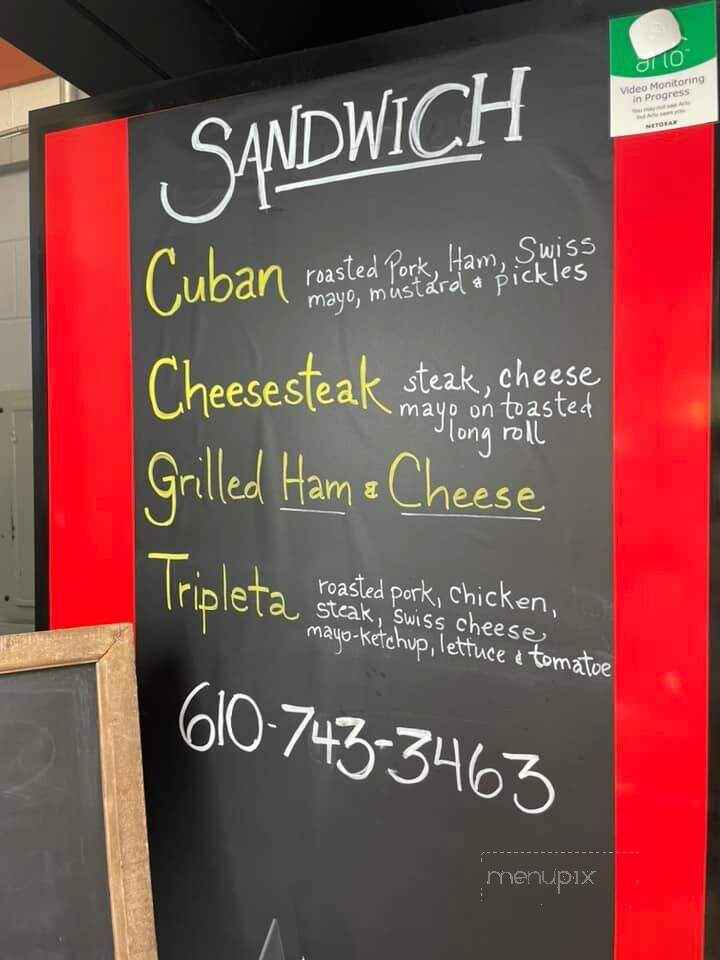 arlo
Video Monitoring
in Progress
You may not see Arlo
but Arlo sees you.
NETGEAR
SANDWICH
Cuban roasted Pork, Ham, Swiss
mayo, mustard & pickles
Cheesesteak steak, cheese
mayo on toasted
long roll
Grilled Ham & Cheese
Tripleta roasted pork, chicken,
steak, swiss cheese,
mayo-ketchup, lettuce & tomatoe
610-743-3463
menupix